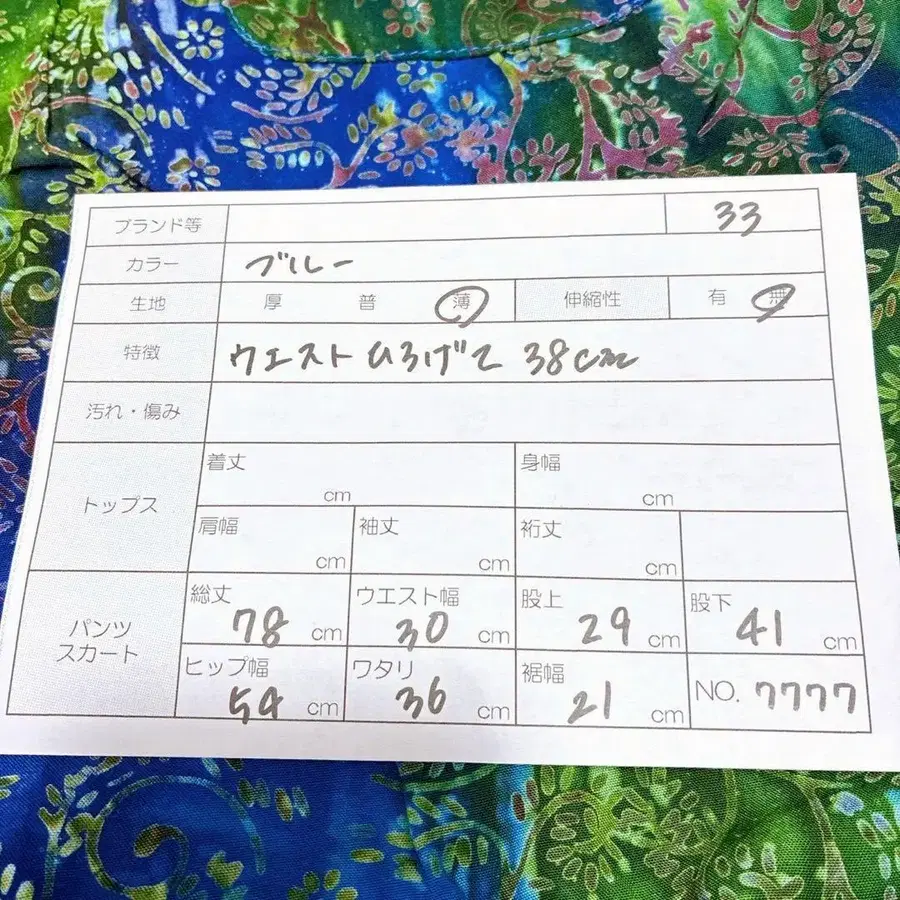 ブランド等 33
カラー ブルー
生地 厚 普 薄 伸縮性 有 無
特徴 ウエストひろげて 38cm
汚れ・傷み
トップス
着丈 cm 身幅 cm
肩幅 cm 袖丈 cm 裄丈 cm
パンツ
スカート
総丈 78 cm ウエスト幅 30 cm 股上 29 cm 股下 41 cm
ヒップ幅 54 cm ワタリ 36 cm 裾幅 21 cm NO. 7777